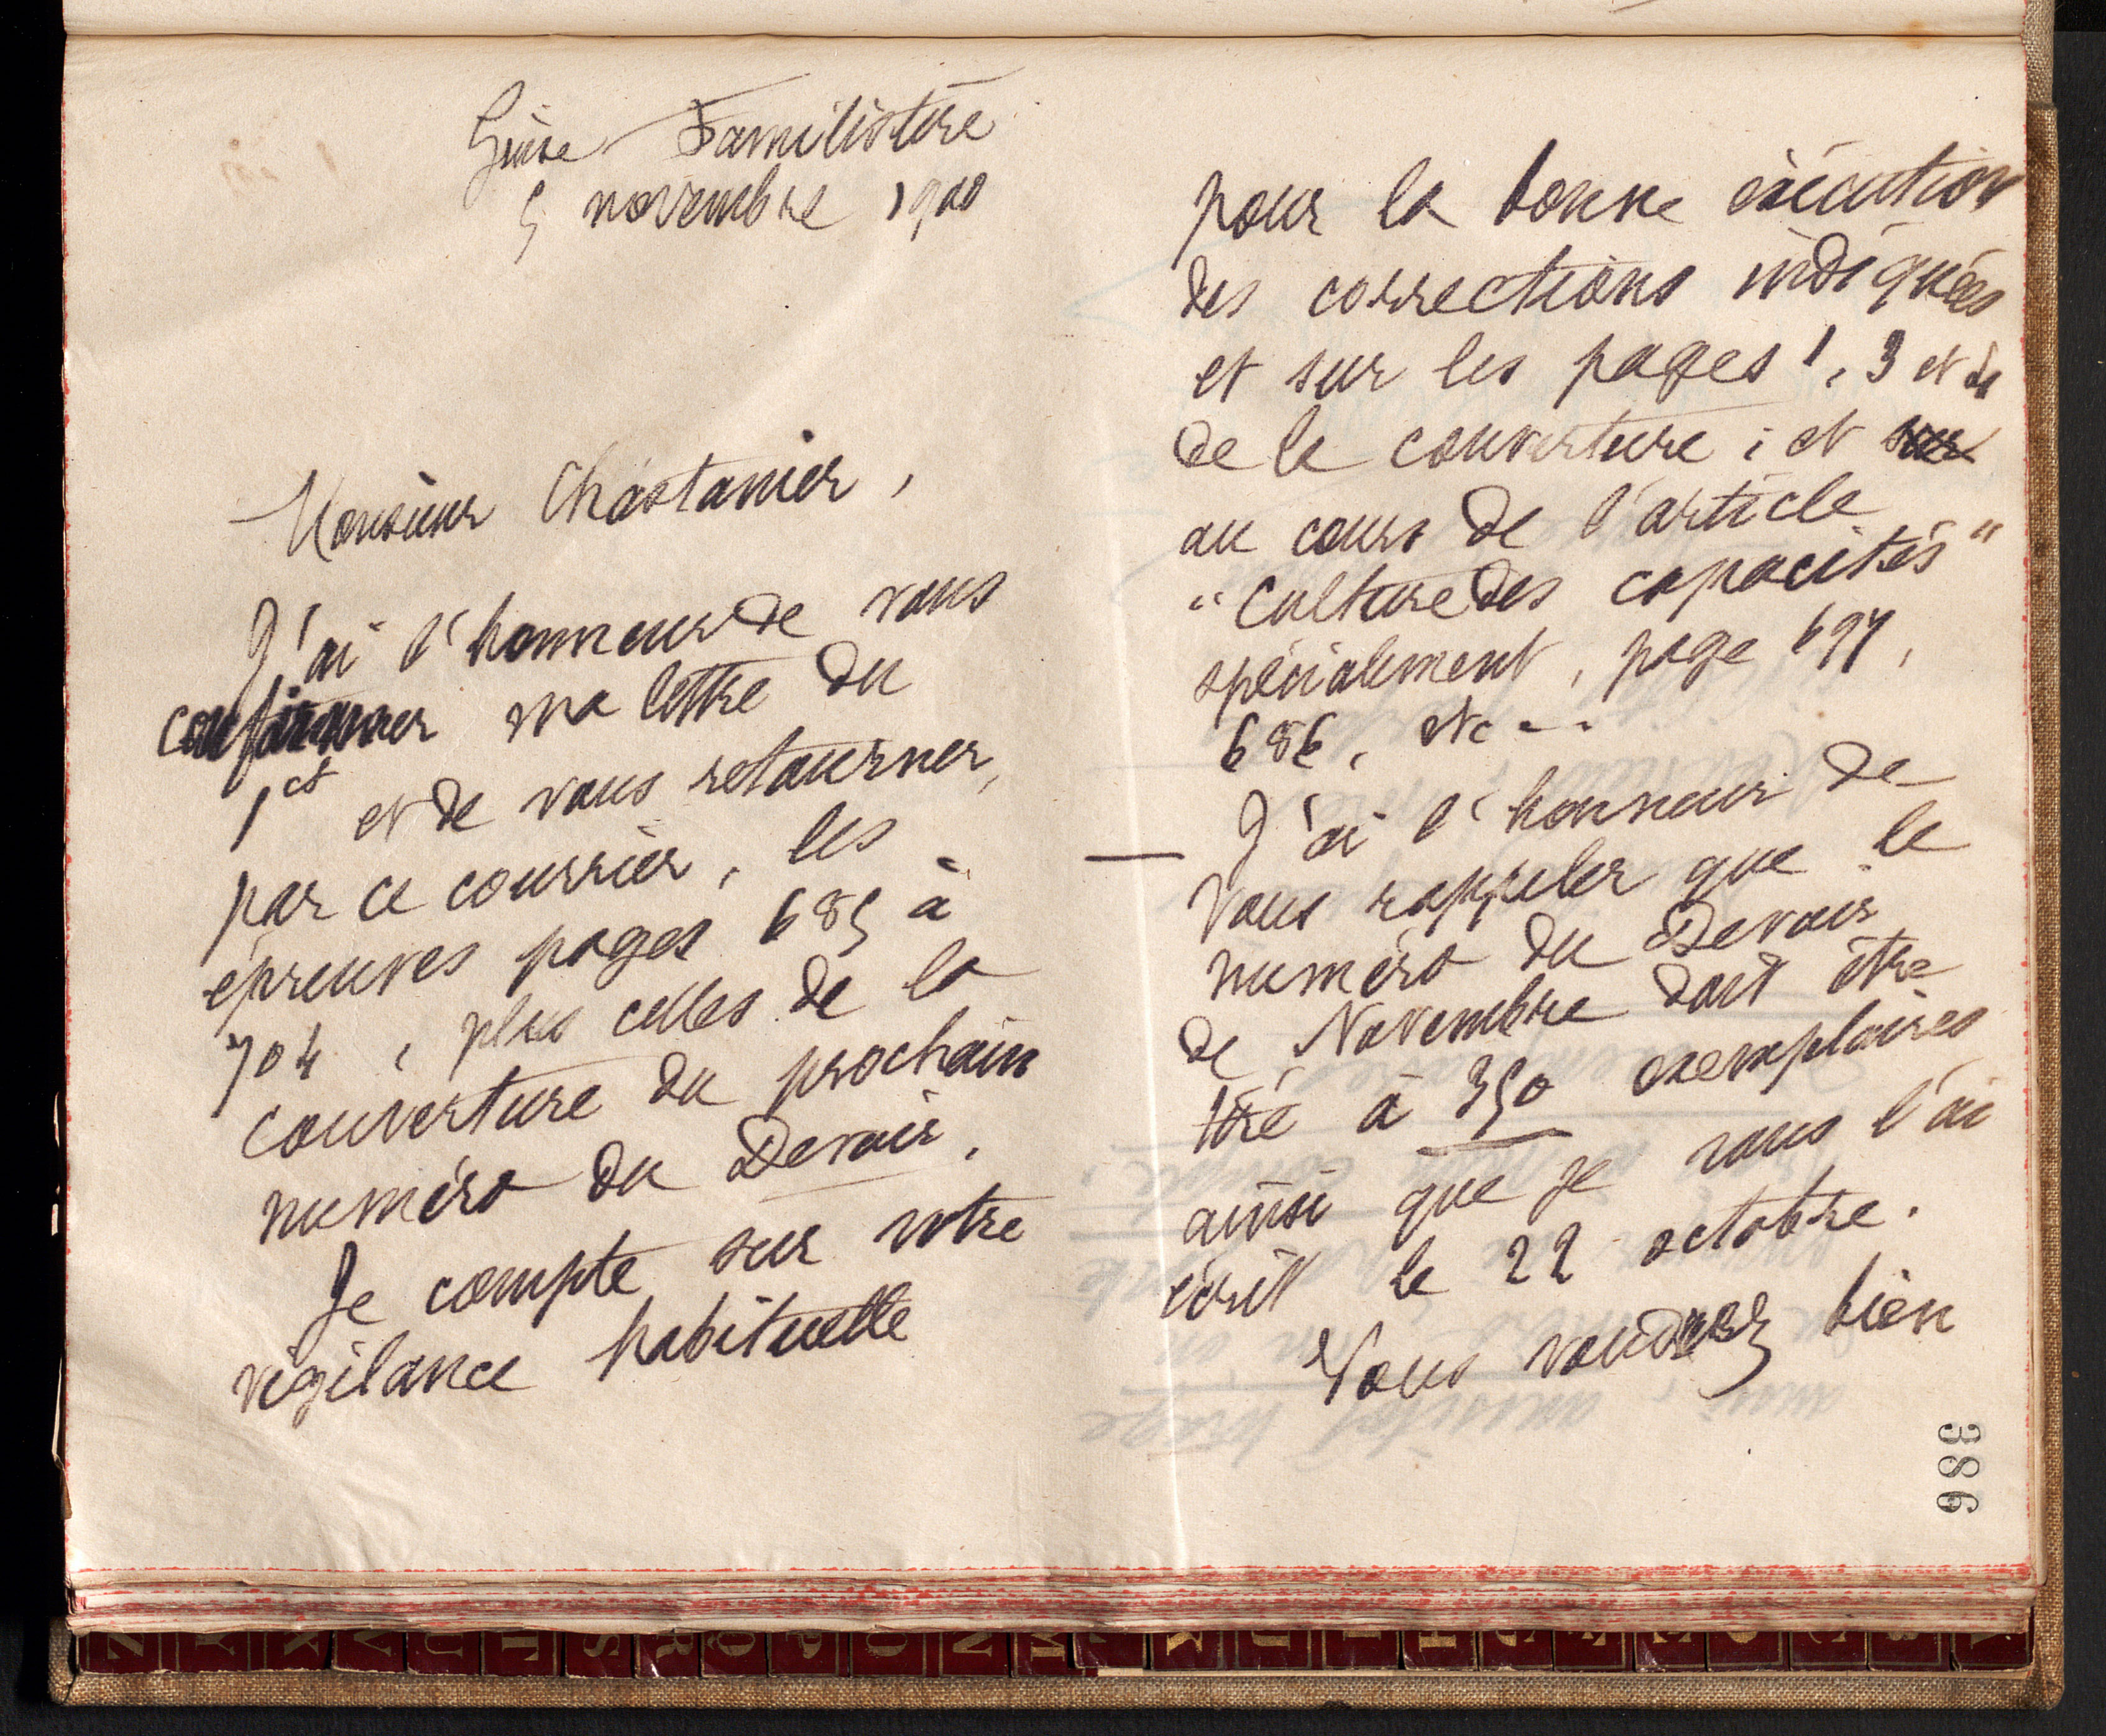 Guise Familistère
5 novembre 1900
Monsieur Chastanier,
J'ai l'honneur de vous
confirmer ma lettre du
1er et de vous retourner,
par ce courrier, les
épreuves pages 685 à
704, plus celles de la
couverture du prochain
numéro du Devoir.
Je compte sur votre
vigilance habituelle
pour la bonne exécution
des corrections indiquées
et sur les pages 1, 3 et
de la couverture ; et sur
au cours de l'article
"Culture des capacités"
spécialement, page 697,
686, etc --
— J'ai l'honneur de
vous rappeler que le
numéro du Devoir
de Novembre doit être
tiré à 350 exemplaires
ainsi que je vous l'ai
écrit le 22 octobre.
Vous voudrez bien
386
Z Y X V U T S R Q P O N M L K J I H G F E D C B A